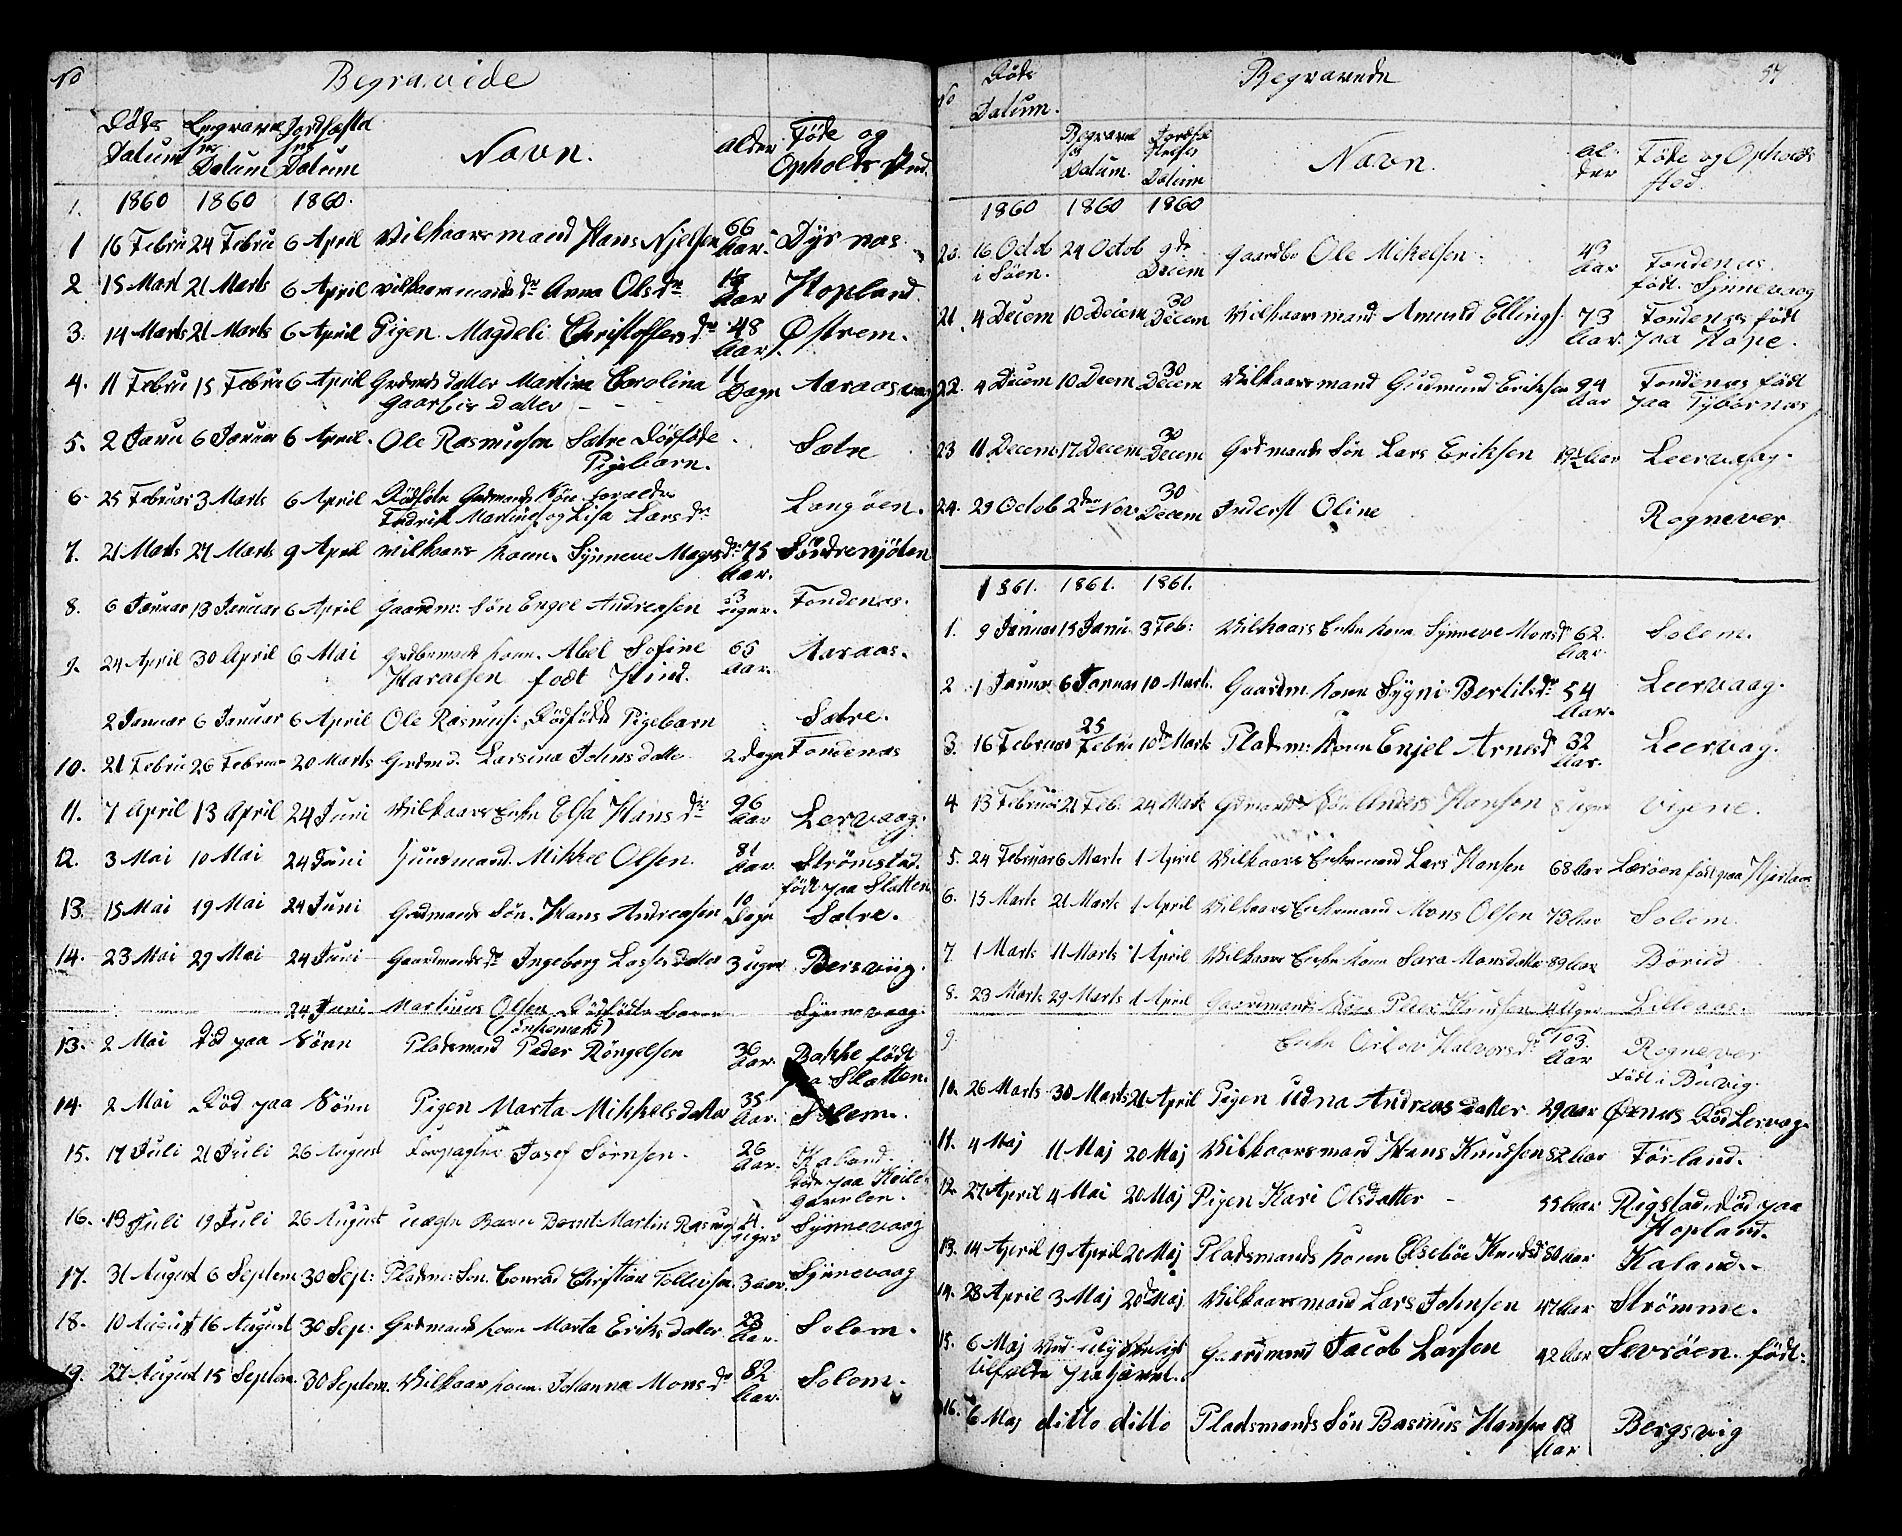 No Begravede
Døds Datum Begravelses Datum Jordfæstelses Datum Navn. alder Föde og Opholdssted.
1. 1860 1860 1860.
1 16 Febru 24 Febru 6 April Vilkaarsmand Hans Njelsen 66 Aar. Dyrnæs
2 15 Mart 21 Marts 6 April vilkaarmands dr Anna Olsdr Aar Hopland
3. 14 Marts 21 Marts 6 April Pigen Magdeli Christoffersdr 48 Aar Østrem.
4. 11 Febru 15 Febru 6 April Grdmds datter Martina Carolina 11 Dage Aaraasvaag
Gaarbis datter - - -
5. 2 Janu 6 Januar 6 April. Ole Rasmusen Sætre Dödföde Sætre
Pigebarn.
6. 25 Februar 3 Marts 6 April Dödföte Grdmands Sön foreldre Langöen.
Fredrik Martines og Lisa Larsdr
7. 21 Marts 27 Marts 9 April vilkaars kone. Synneve Magsdr 75 Aar. Söndrenjöten
8. 6 Januar 13 Januar 6 April Gaardm: Sön Engel Andreasen 3 uger. Fondenæs.
9. 24 April 30 April 6 Mai kone. Abel Sofine 65 Aar. Aaraas.
Haralsen født Hind.
2 Januar 6 Januar 6 April Ole Rasmus: Dödfödt Pigebarn Sætre.
10. 21 Febru 26 Februar 20 Marts Grdmd. Larsina Johnsdatter 2 Dage Fondenæs
11. 7 April 13 April 24 Juni Vilkaars Enke Elsa Hansdr 96 Aar Lervaag.
12. 3 Mai 10 Mai 24 Juni Huusmand. Mikkel Olsen. 81 Aar. Strømstad.
født paa Slatten
13. 15 Mai 19 Mai 24 Juni Grdmands Sön. Hans Andreasen 10 Dage Sætre.
14. 23 Mai 29 Mai 24 Juni Gaardmands dr Ingeborg Lassesdatter 3 uger Bersviig.
24 Juni Martinus Olsen Dödfödte barn Synnevaag.
13. 2 Mai Död paa Söen Pladsmand Peder Röngelsen 36 Aar. Bakke födt
paa Slatten.
14. 2 Mai Död paa Söen Pigen Marta Mikkelsdatter 35 Aar. Solem.
15. 17 Juli 21 Juli 26 August Forpagter Josef Sörnsen 26 Aar. Kaland.
födt paa
16. 13 Juli 19 Juli 26 August uægte Barn Bernt Martin Rasmus 4 uger Synnevaag
17. 31 August 6 Septem 30 Sep: Pladsm: Sön Conrad Christian Tollevsen 3 aar. Synnevaag
18. 10 August 16 August 30 Sep: Grdmands kone Marta Eriksdatter 73 Aar. Solem.
19. 27 August 15 Septem 30 Septem. Vilkaar kone. Johanna Monsdr 82 Aar. Solem.
No Döds Datum. Begravede 57
Begravelses Datum. Jordfæstelses Datum Navn. alder Föde og Opholds sted.
1860 1860 1860
20. 16 Octob 24 Octob 9de Decem Gaardbr Ole Mikelsen 43 Aar Fondenæs.
i Söen. födt. Synnevaag
21. 4 Decem 10 Decem 30 Decem Vilkaarsmand Amund Ellings 73 Aar. Fondenæs födt
paa Hope.
22. 4 Decem 10 Decem 30 Decem Vilkaarsmand Gudmund Eriksen 94 Aar Fondenæs födt
paa Tybornæs
23 11 Decem 17 Decem 30 Decem Grdmands Sön Lars Eriksen Aar Leervaag.
24. 29 Octob 2den Nov. 30 Decem Inderst Oline Rognever
1861. 1861. 1861.
1. 9 Januar 15 Janu. 3 Feb: Vilkaars Enke kone Synneve Monsdr 62. Aar. Solem.
2 1 Januar 6 Januar 10 Marts. Gaardm kone Sygni Bertilsdr 54 Aar. Leervaag.
3. 16 Februar 25 Febru 10de Marts Pladsm: kone Enjel Arnesdr 32 Aar. Leervag.
4 13 Februar 21 Feb. 24 Marts Grdmands Sön Anders Hansen uger vigene.
5. 24 Februar 6 Marts 1 April Vilkaars Enkemand Lars Hansen 68 Aar Lærøen födt paa Hjertaas
6. 15 Marts 21 Marts 1 April Vilkaars Enkemand Mons Olsen 73 Aar Solem.
7. 1 Marts 11 Marts 1 April Vilkaars Enke kone Sara Monsdatter 89 Aar Börud
8. 23 Marts 29 Marts 1 April Gaardmands Sön Peder Knudsen 4 Uger Lilleaas.
9. Enke Halvorsdr 103. Aar Rognever
født i Buvig.
10. 26 Marts 30 Marts 21 April Pigen Udna Andreasdatter 29 aar Ørnes Död Lervag
11. 4 Maj 11 Maj 20 Maj Vilkaarsmand Hans Knudsen 82 Aar Förland.
12. 27 April 4 Mai 20 Maj Pigen Kari Olsdatter - 55 Aar Rigstad. Död paa
Hopland.
13. 14 April 19 April 20 Maj Pladsmands kone Elsebie Knudsdr 80 Aar Kaland.
14. 28 April 3 Maj 20de Maj Vilkaarsmand Lars Johnsen 47 Aar Strömme.
15. 6 Maj Ved ulykkeligt Gaardmand Jacob Larsen 42 Aar Sevröen. födt:
tilfælde
16. 6 Maj ditto ditto Pladsmands Sön Rasmus Hansen 18 Aar Bergsvig